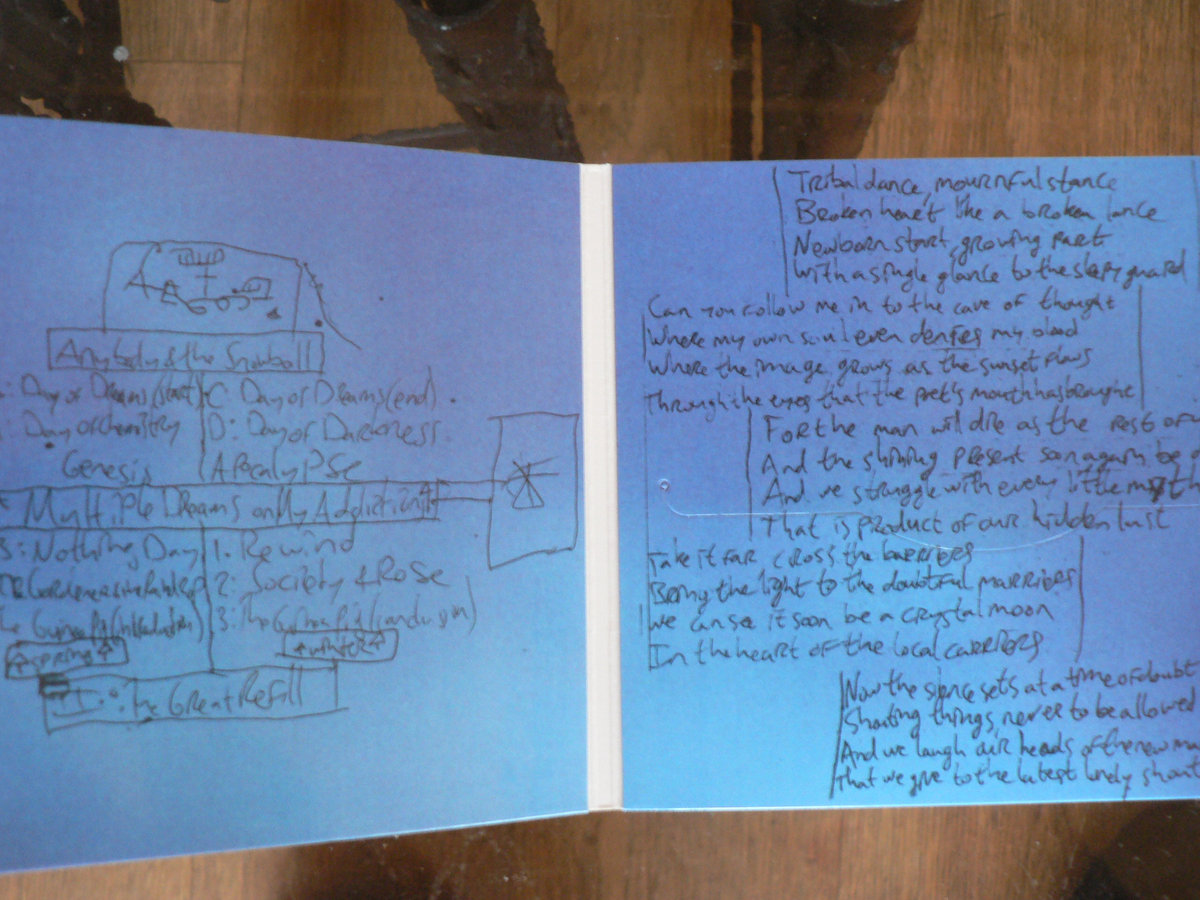 Anybody & the Snowball
Day of Dreams (start)
C: Day of Dreams (end).
Day of chemistry
D: Day of Darkness.
Genesis
Apocalypse
Multiple Dreams on My Addiction
3: Nothing Day
1. Rewind
2: Society & Rose
The Guinea Pig (introduction)
3: The Guinea Pig
Spring
Winter
I: The Great Refill
Tribal dance, mournful stance
Broken heart like a broken lance
Newborn start, growing part
With a single glance to the sleepy guard
Can you follow me in to the cave of thought
Where my own soul even denies my blood
Where the image grows as the sunset flaws
Through the eyes that the poet's mouth has brought
For the man will die as the rest of
And the shining present soon again be
And we struggle with every little
That is product of our hidden lust
Take it far cross the barriers
Being the light to the doubtful marriers
We can see it soon be a crystal moon
In the heart of the local carriers
Now the silence sets at a time of doubt
Shouting things, never to be allowed
And we laugh air heads of the new
That we give to the latest lonely shout